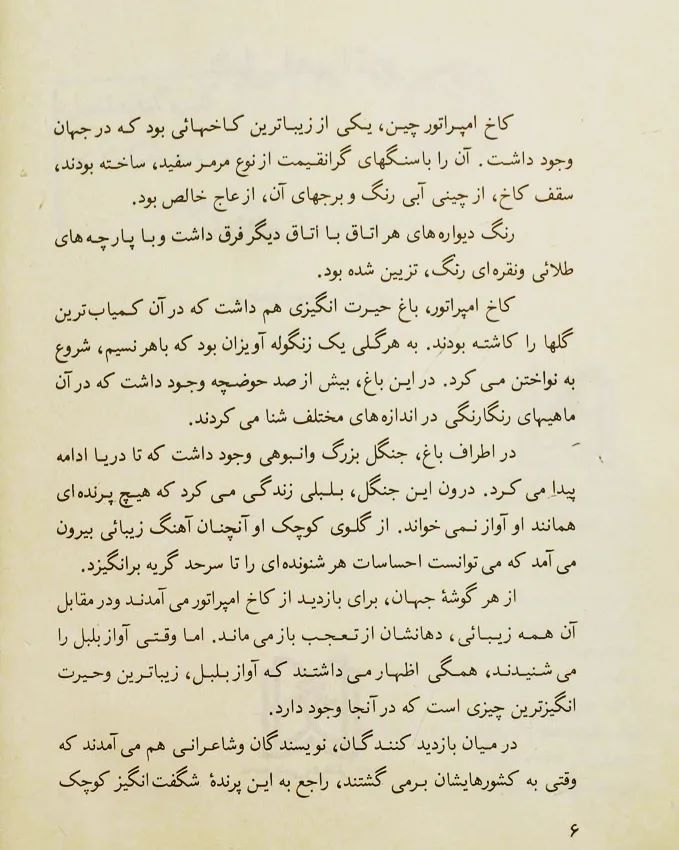 کاخ امپراتور چین، یکی از زیباترین کاخهائی بود که در جهان
وجود داشت. آن را با سنگهای گرانقیمت از نوع مرمر سفید، ساخته بودند،
سقف کاخ، از چینی آبی رنگ و برجهای آن، از عاج خالص بود.
رنگ دیواره‌های هر اتاق با اتاق دیگر فرق داشت و با پارچه‌های
طلائی ونقره‌ای رنگ، تزیین شده بود.
کاخ امپراتور، باغ حیرت انگیزی هم داشت که در آن کمیاب‌ترین
گلها را کاشته بودند. به هرگلی یک زنگوله آویزان بود که باهر نسیم، شروع
به نواختن می کرد. در این باغ، بیش از صد حوضچه وجود داشت که در آن
ماهیهای رنگارنگی در اندازه‌های مختلف شنا می کردند.
در اطراف باغ، جنگل بزرگ وانبوهی وجود داشت که تا دریا ادامه
پیدا می کرد. درون این جنگل، بلبلی زندگی می کرد که هیچ پرنده‌ای
همانند او آواز نمی خواند. از گلوی کوچک او آنچنان آهنگ زیبائی بیرون
می آمد که می توانست احساسات هر شنونده‌ای را تا سرحد گریه برانگیزد.
از هر گوشهٔ جهان، برای بازدید از کاخ امپراتور می آمدند ودر مقابل
آن همه زیبائی، دهانشان از تعجب باز می ماند. اما وقتی آواز بلبل را
می شنیدند، همگی اظهار می داشتند که آواز بلبل، زیباترین وحیرت
انگیزترین چیزی است که در آنجا وجود دارد.
در میان بازدید کنندگان، نویسندگان وشاعرانی هم می آمدند که
وقتی به کشورهایشان برمی گشتند، راجع به این پرندهٔ شگفت‌انگیز کوچک
۶